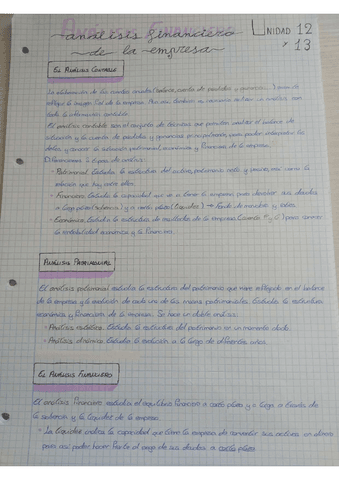 análisis financiero
de la empresa
UNIDAD 12
y 13
EL ANÁLISIS CONTABLE
La elaboración de las cuentas anuales (balance, cuenta de pérdidas y ganancias...) sirve
refleja la imagen fiel de la empresa. Para es necesario un análisis con
toda la información contable.
El análisis contable son el conjunto de técnicas que permiten analizar el balance de
situación y la cuenta de pérdidas y ganancias principalmente, para poder interpretar los
datos y conocer la situación patrimonial, económica y financiera de la empresa.
Diferenciamos 3 tipos de análisis:
- Patrimonial. Estudia la estructura del activo, patrimonio neto y pasivo, así como la
relación que hay entre ellos.
- Financiero. Estudia la capacidad que va a tener la empresa para devolver sus deudas
a largo plazo (solvencia) y a corto plazo (liquidez) → Fondo de maniobra y ratios.
- Económico. Estudia la estructura de resultados de la empresa (cuenta P y G) para conocer
la rentabilidad económica y la financiera.
ANÁLISIS PATRIMONIAL
El análisis patrimonial estudia la estructura del patrimonio que viene reflejado en el balance
de la empresa y la evolución de cada una de las masas patrimoniales. Estudia la estructura
económica y financiera de la empresa. Se hace un doble análisis:
- Análisis estático. Estudia la estructura del patrimonio en un momento dado.
- Análisis dinámico. Estudia la evolución a lo largo de diferentes años.
EL ANÁLISIS FINANCIERO
El análisis financiero estudia el equilibrio financiero a corto plazo y a largo a través de
la solvencia y la liquidez de la empresa.
- La liquidez indica la capacidad que tiene la empresa de convertir sus activos en dinero
para así poder hacer frente al pago de sus deudas a corto plazo